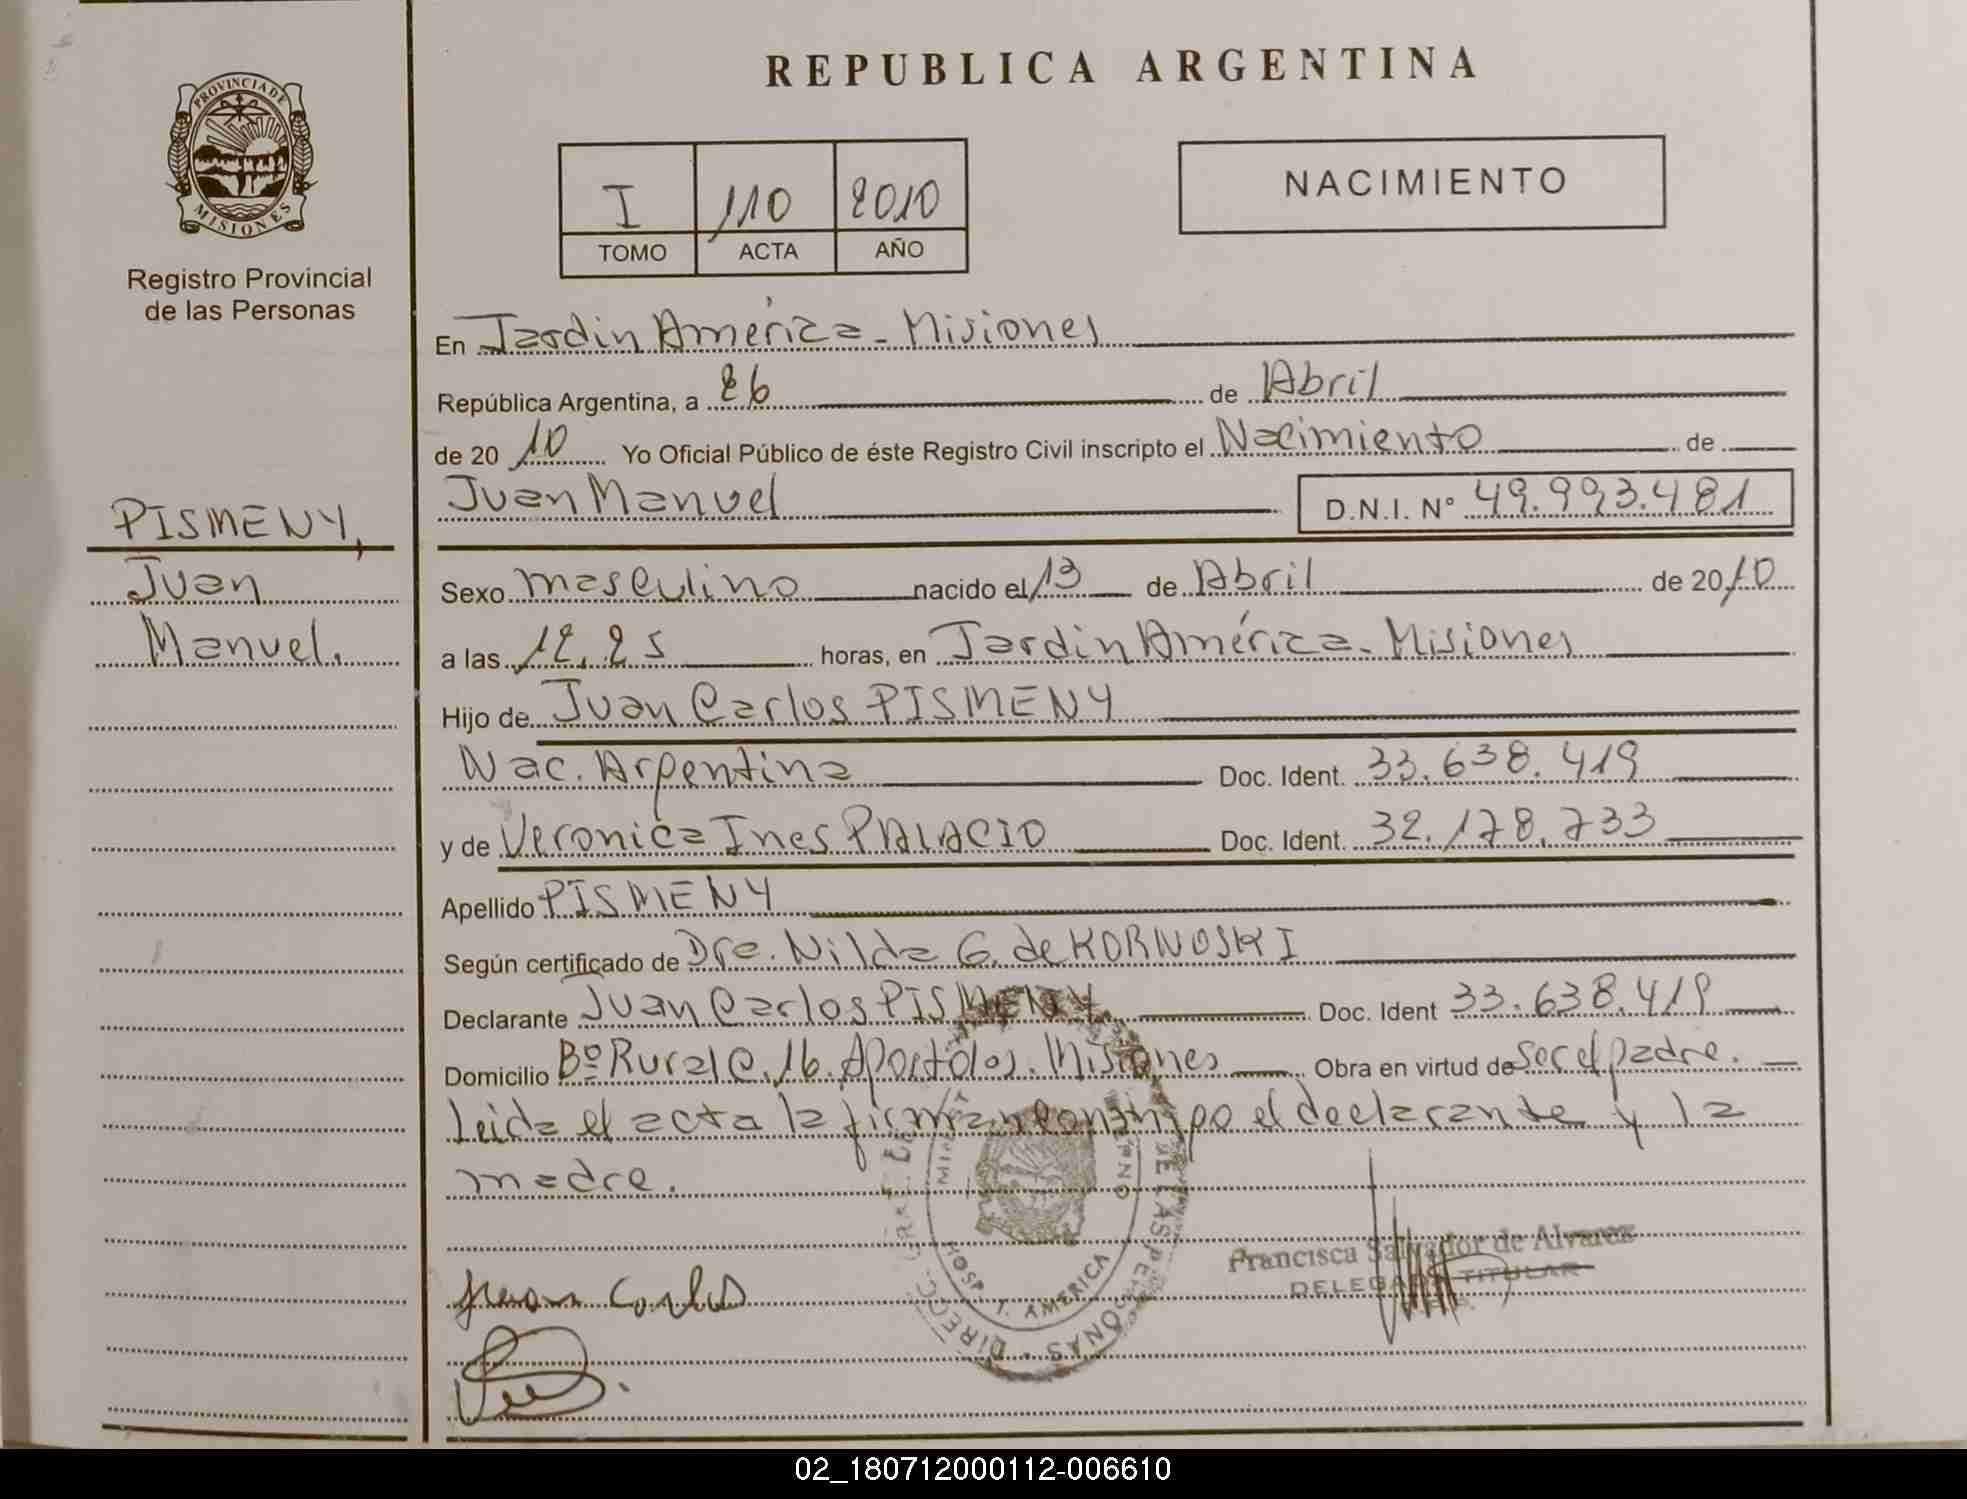 REPUBLICA ARGENTINA
PROVINCIA DE
MISIONES
Registro Provincial
de las Personas
I 110 2010
TOMO ACTA AÑO
NACIMIENTO
En Jardin América - Misiones
República Argentina, a 26 de Abril
de 20 10 Yo Oficial Público de éste Registro Civil inscripto el Nacimiento de
Juan Manuel D.N.I. N° 49.993.481
PISMENY,
Juan
Manuel.
Sexo masculino nacido el 13 de Abril de 20 10
a las 12.25 horas, en Jardin América - Misiones
Hijo de Juan Carlos PISMENY
Nac. Argentina Doc. Ident. 33.638.419
y de Veronica Ines PALACIO Doc. Ident. 32.178.733
Apellido PISMENY
Según certificado de Dra. Nilda G. de KORNOSKI
Declarante Juan Carlos PISMENY. Doc. Ident 33.638.419
Domicilio Bº Rural C. 16. Apostoles. Misiones Obra en virtud de ser el padre.
Leida el acta la firman conmigo el declarante y la
madre.
Juan Carlos
Francisca Salvador de Alvarez
DELEGADA TITULAR
HOSP. J. AMERICA
DE LAS PERSONAS
02_180712000112-006610